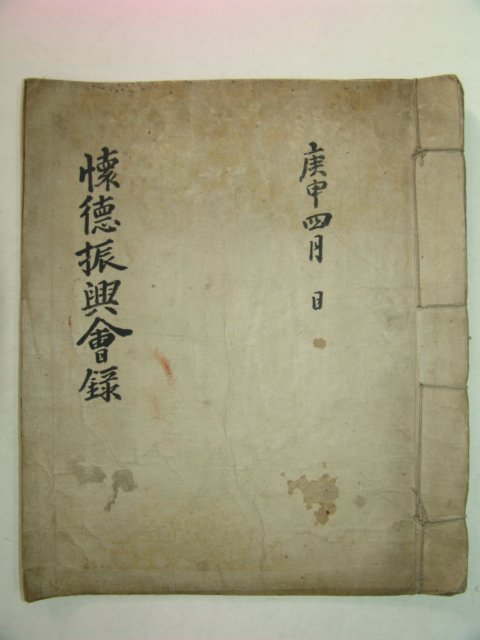 庚申四月 日
懷德振興會錄